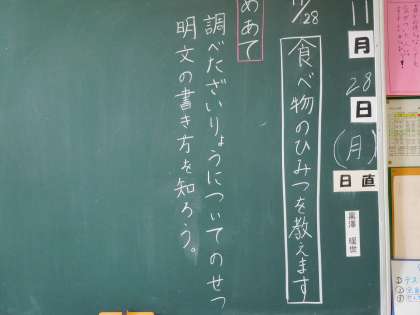 11月28日(月)
日直
黒澤 瑠世
11/28
食べ物のひみつを教えます
めあて
調べたざいりょうについてのせつ
明文の書き方を知ろう。